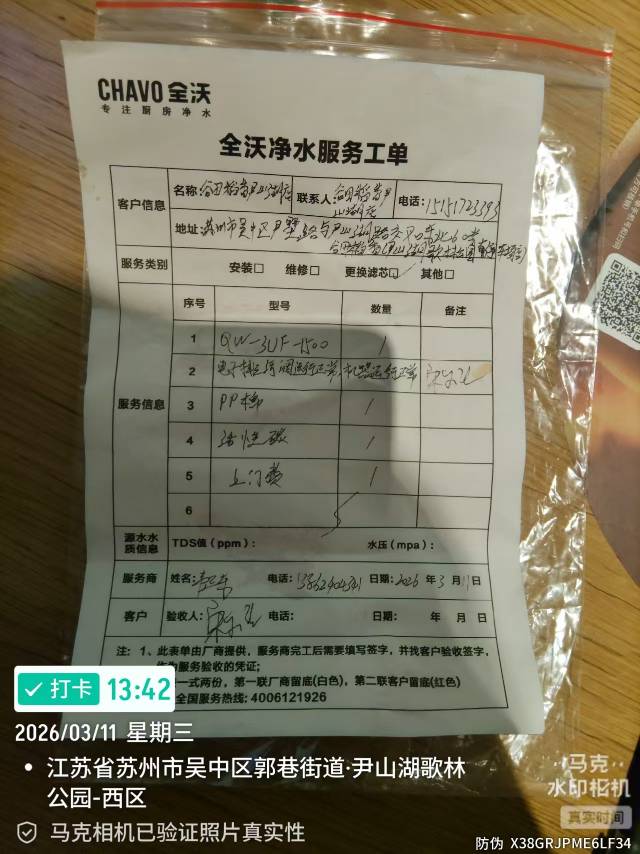 CHAVO 全沃
专注厨房净水
全沃净水服务工单
客户信息
名称: 合田稻香尹山湖店
联系人: 合田稻香尹山湖店
电话:
地址: 苏州市吴中区尹山湖路
服务类别
安装□ 维修□ 更换滤芯□ 其他□
服务信息
序号 型号 数量 备注
1 QW-3UF-1500 1
2 运行正常,机器运行正常
3 PP棉 1
4 活性碳 1
5 上门费 1
6
源水水质信息
TDS值(ppm): 水压(mpa):
服务商 姓名: 电话: 日期: 2026 年 3 月 11 日
客户 验收人: 电话: 日期: 年 月 日
注: 1、此表单由厂商提供,服务商完工后需要填写签字,并找客户验收签字,
作为服务验收的凭证;
一式两份,第一联厂商留底(白色),第二联客户留底(红色)
全国服务热线: 4006121926
打卡 13:42
2026/03/11 星期三
江苏省苏州市吴中区郭巷街道·尹山湖歌林
公园-西区
马克相机已验证照片真实性
马克
水印相机
真实时间
防伪 X38GRJPME6LF34